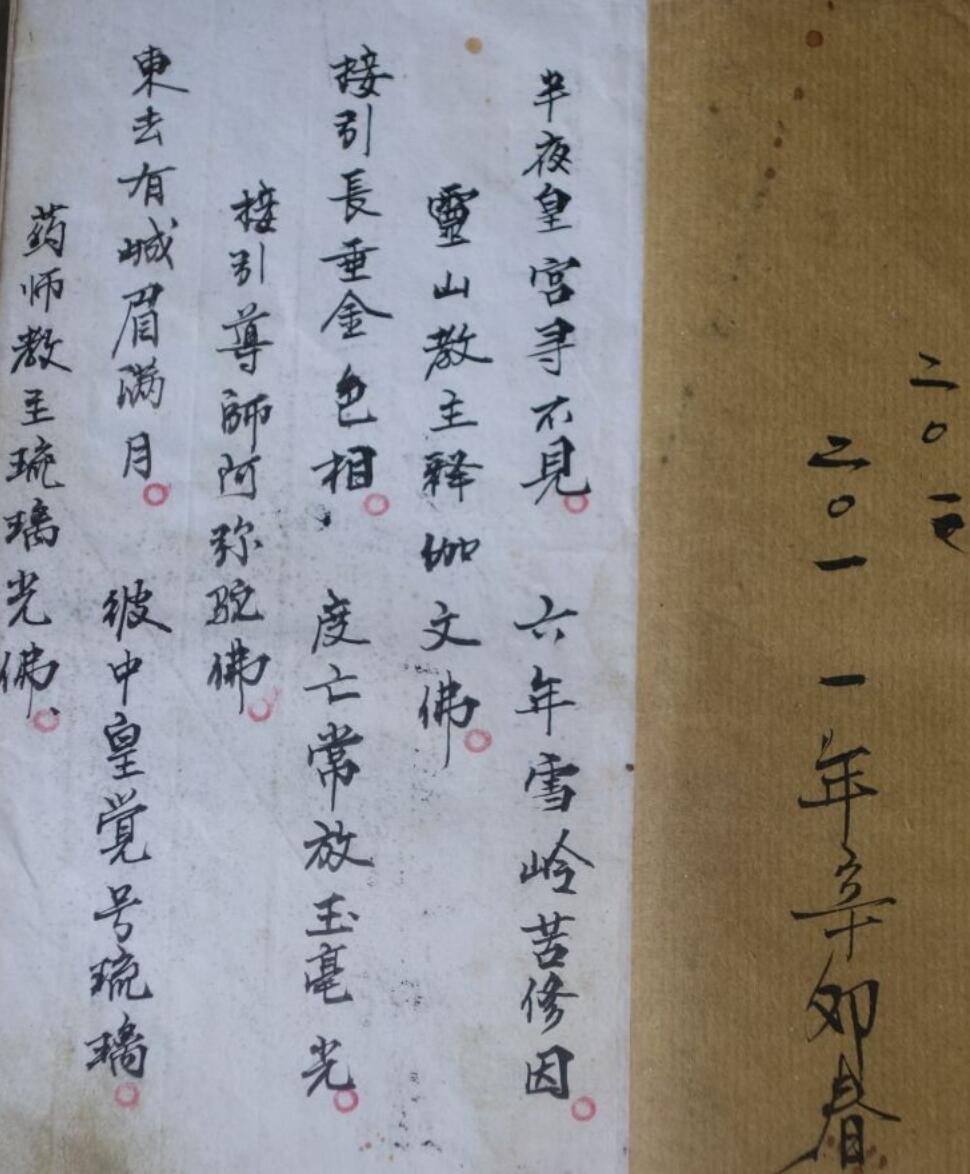 二〇一
二〇一一年辛卯春
半夜皇宮寻不見。六年雪岭苦修因。
靈山教主释伽文佛。
接引長垂金色相。度亡常放玉毫光。
接引導師阿弥陀佛。
東去有城眉满月。彼中皇覚号琉璃。
药师教主琉璃光佛。